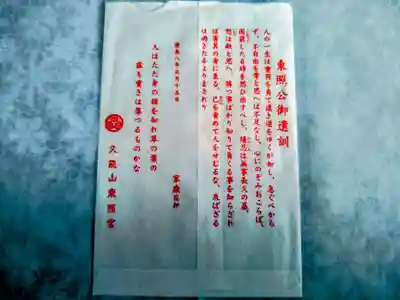 東照公御遺訓
人の一生は重荷を負て遠き道をゆくが如し、急ぐべから
ず、不自由を常と思へば不足なし、心にのぞみおこらば、
困窮したる時を思ひ出すべし、堪忍は無事長久の基、
怒は敵と思へ、勝つ事ばかり知りて負くる事を知らざれ
ば害其の身に至る、己を責めて人をせむるな、及ばざる
は過ぎたるよりまされり
慶長八年正月十五日
家康花押
人はただ身の程を知れ草の葉の
露も重きは落つるものかな
久能山東照宮